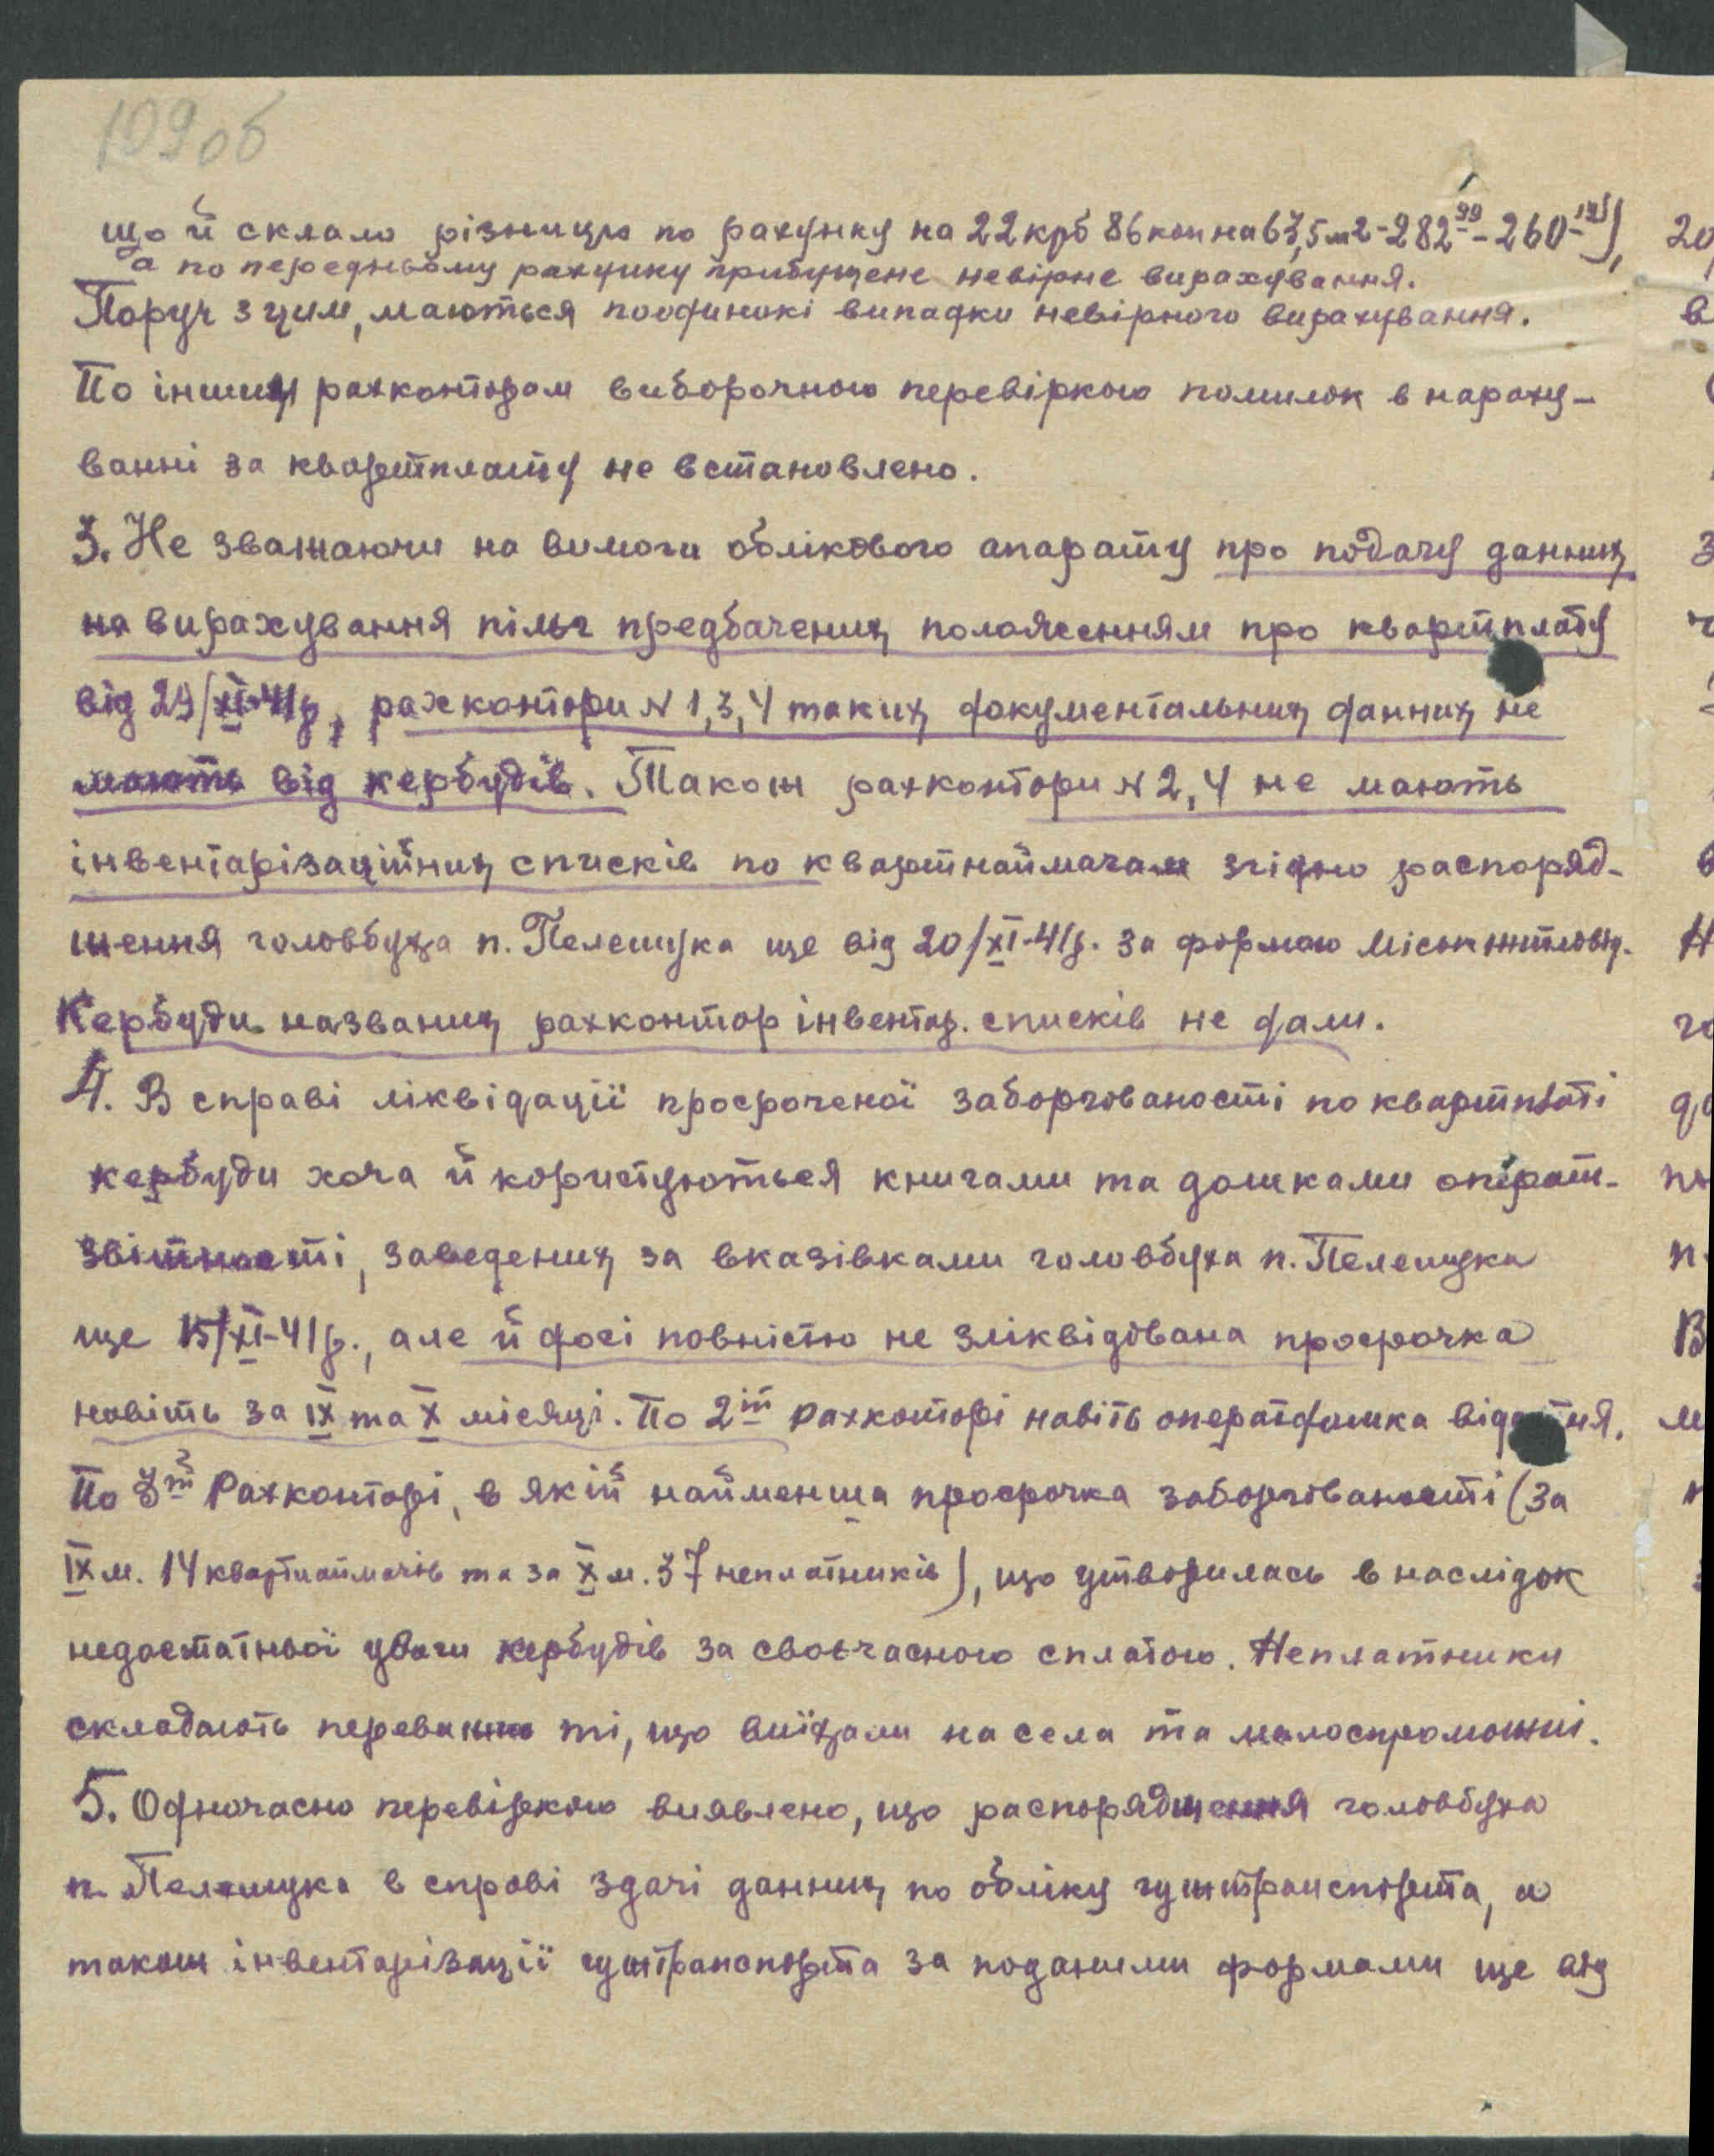 109об
що й склало різницю по рахунку на 22 крб 86 коп на 63,5 м2 - 282-99 - 260-13),
а по передньому рахунку прибущене невірне вирахування.
Поруч з цим, маються поодинокі випадки невірного вирахування.
По іншим рахконторам виборочною перевіркою помилок в нараху-
ванні за квартплату не встановлено.
3. Не зважаючи на вимоги облікового апарату про подачу данних
на вирахування пільг предбачених положенням про квартплату
від 29/XI-41р., рахконтори N 1,3,4 таких документальних данних не
мають від кербудів. Також рахконтори N 2,4 не мають
інвентарізаційних списків по квартнаймачам згідно распоряд-
ження головбуха п. Пелешука ще від 20/XI-41р. за формою Міськжитловід.
Кербуди названих рахконтор інвентар. списків не дали.
4. В справі ліквідації просроченої заборгованості по квартплаті
кербуди хоча й користуються книгами та дошками операт-
звітності, заведених за вказівками головбуха п. Пелешука
ще 15/XI-41р., але й досі повністю не зліквідована просрочка
навіть за IX та X місяці. По 2й рахконторі навіть оператдошка відсутня.
По 3й Рахконторі, в якій найменша просрочка заборгованості (За
IX м. 14 квартнаймачів та за X м. 37 неплатників), що утворилась в наслідок
недостатньої уваги кербудів за своєчасною сплатою. Неплатники
складають переважно ті, що виїхали на села та малоспроможні.
5. Одночасно перевіркою виявлено, що распорядження головбуха
п. Пелешука в справі здачі данних по обліку гужтранспорта, а
також інвентарізації гужтранспорта за поданими формами ще від